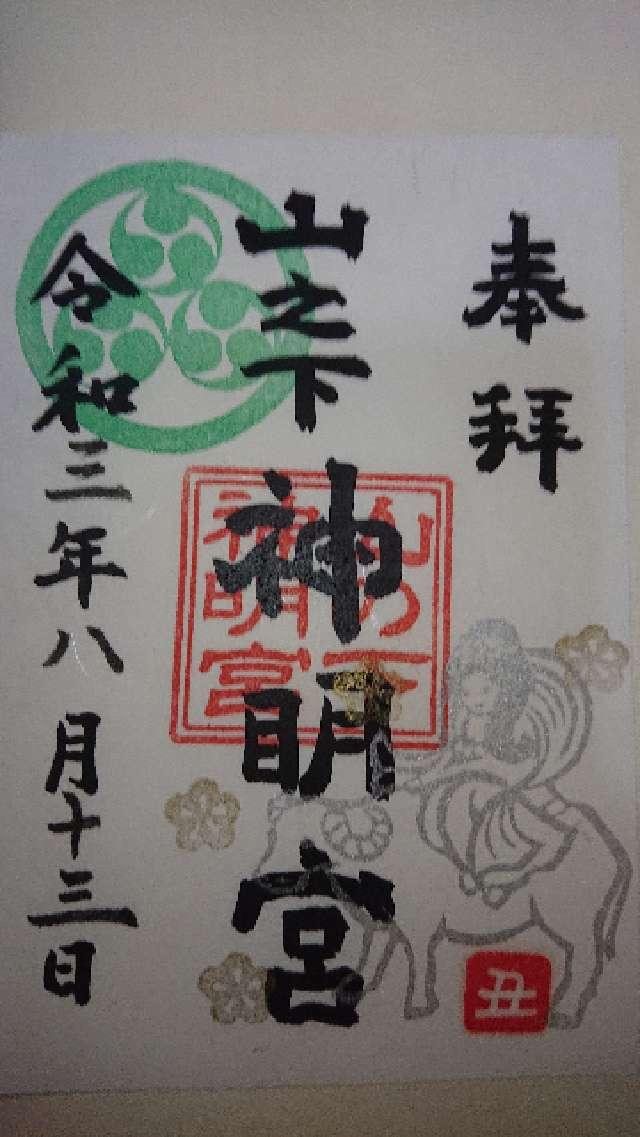 奉拝
山之下
神明宮
山の下
神明宮
令和三年八月十三日
丑